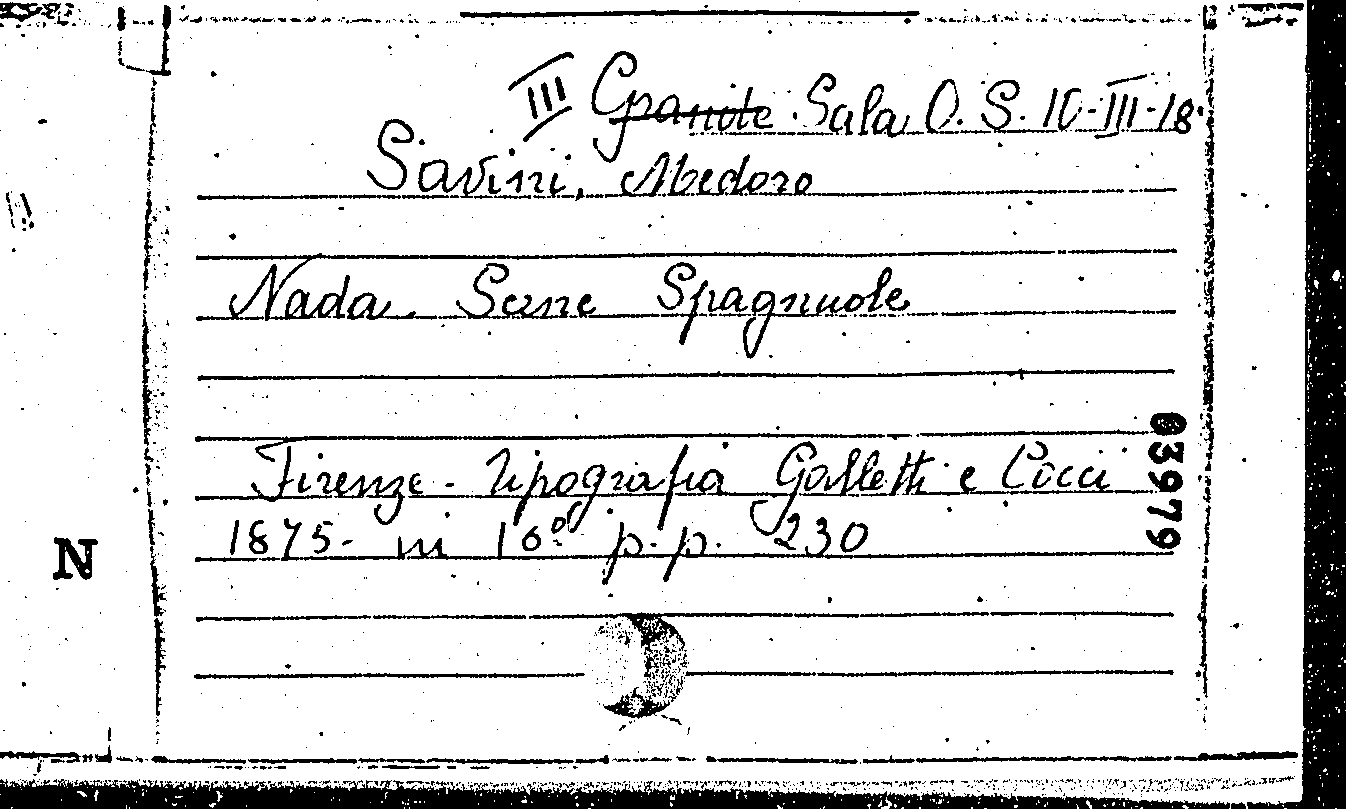 III Granite Sala O. S. 10-III-18.
Savini, Medoro
Nada. Scene Spagnuole
Firenze - Tipografia Galletti e Cocci
1875- in 16º p.p. 230
03979
N